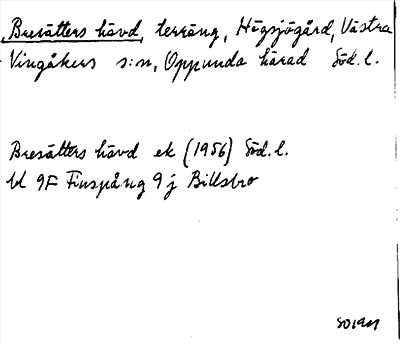 Bresätters hävd, terräng, Högsjögård, Västra
Vingåkers s:n, Oppunda härad Söd. l.
Bresätters hävd ek (1956) Söd. l.
bl 9F Finspång 9j Billsbro